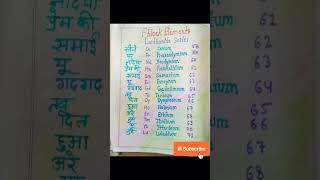 F block Elements
Lanthanide Series
Ce Cerium 58
पर Pr Praseodymium 59
Nd Neodymium 60
प्रेम की Pm Promethium 61
समाई Sm Samarium 62
यू Eu Europium 63
गदगद Gd Gadolinium 64
तब Tb Terbium 65
Dy Dysprosium 66
हुआ Ho Holmium 67
अरे Er Erbium 68
Tm Thulium
Yb Ytterbium 70
Lu Lutetium 71
Subscribe